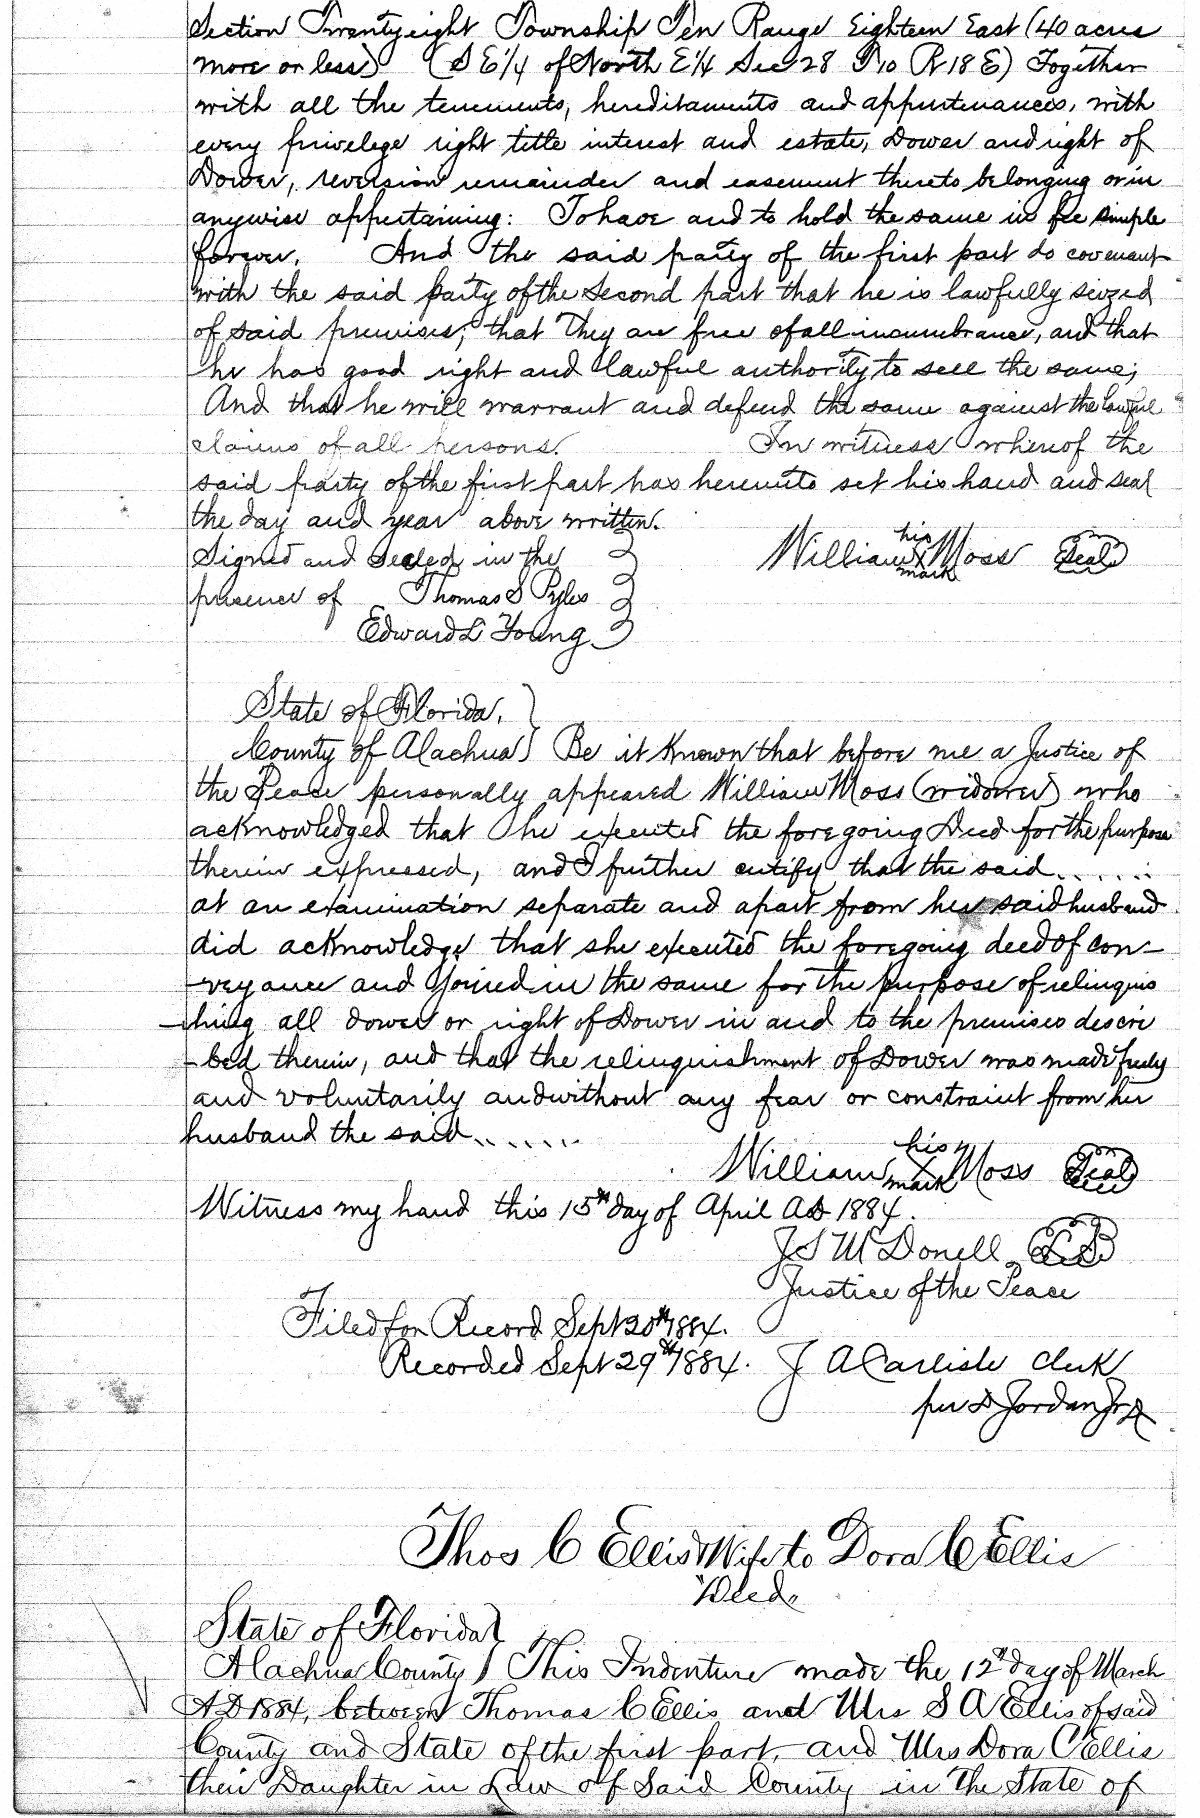 Section Twentyeight Township Ten Range Eighteen East (40 acres
more or less) (S E 1/4 of North E 1/4 Sec 28 T10 R 18 E) Together
with all the tenements, hereditaments and appurtenances, with
every privelege right title interest and estate, Dower and right of
Dower, reversion remainder and easement thereto belonging or in
anywise appertaining: To have and to hold the same in fee simple
forever. And the said party of the first part do covenant
with the said party of the second part that he is lawfully seized
of said premises; that they are free of all incumbrance, and that
he has good right and lawful authority to sell the same;
And that he will warrant and defend the same against the lawful
claims of all persons. In witness whereof the
said party of the first part has hereunto set his hand and seal
the day and year above written.
Signed and sealed in the
presence of Thomas S Pyles
Edward L Young
his
William X Moss Seal
mark
State of Florida,
County of Alachua) Be it Known that before me a Justice of
the Peace personally appeared William Moss (widower) who
acknowledged that he executed the foregoing Deed for the purpose
therein expressed, and I further certify that the said......
at an examination separate and apart from her said husband
did acknowledge that she executed the foregoing deed of con-
-veyance and Joined in the same for the purpose of relinquis
-hing all dower or right of Dower in and to the premises descri
-bed therein, and that the relinquishment of Dower was made freely
and voluntarily and without any fear or constraint from her
husband the said......
his
William X Moss Seal
mark
Witness my hand this 15th day of April AD 1884.
J S McDonell L S
Justice of the Peace
Filed for Record Sept 20th 1884.
Recorded Sept 29th 1884. J A Carlisle Clerk
per D Jordan Jr
Thos C Ellis & Wife to Dora C Ellis
Deed.
State of Florida)
Alachua County) This Indenture made the 12th day of March
A D 1884, between Thomas C Ellis and Mrs S A Ellis of said
County and State of the first part, and Mrs Dora C Ellis
their Daughter in Law of Said County in the State of